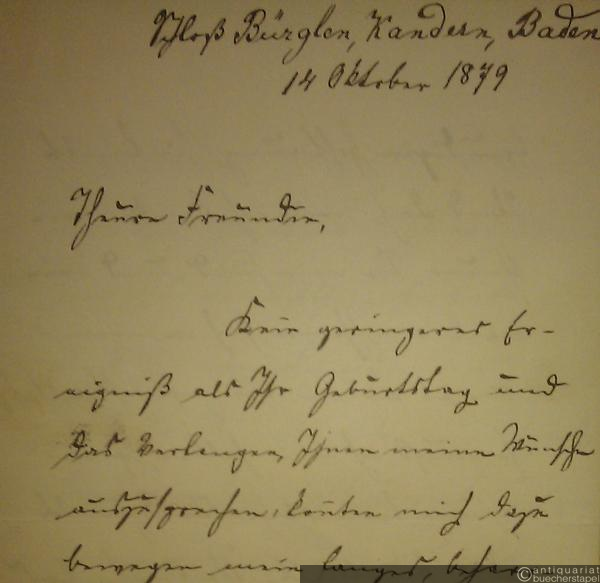 Schloß Bürglen, Kandern, Baden
14 Oktober 1879
Theure Freundin,
Kein geringeres Er-
eigniß als Ihr Geburtstag und
das Verlangen, Ihnen meine Wünsche
auszusprechen, konnten mich dazu
bewegen mein langes behar
antiquariat
buecherstapel